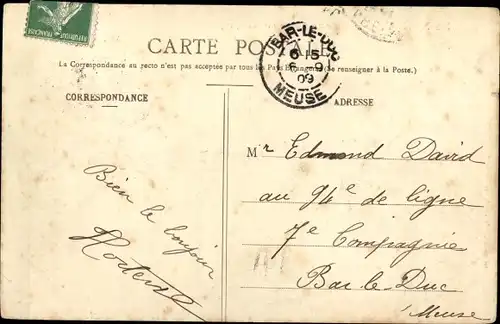 CARTE POSTALE
La Correspondance au recto n'est pas acceptée par tous les Pays Étrangers (Se renseigner à la Poste.)
CORRESPONDANCE
ADRESSE
BAR-LE-DUC
6 15
6-9
09
MEUSE
Mr Edmond David
au 94e de ligne
7e Compagnie
Bar-le-Duc
Meuse
Bien le bonjour